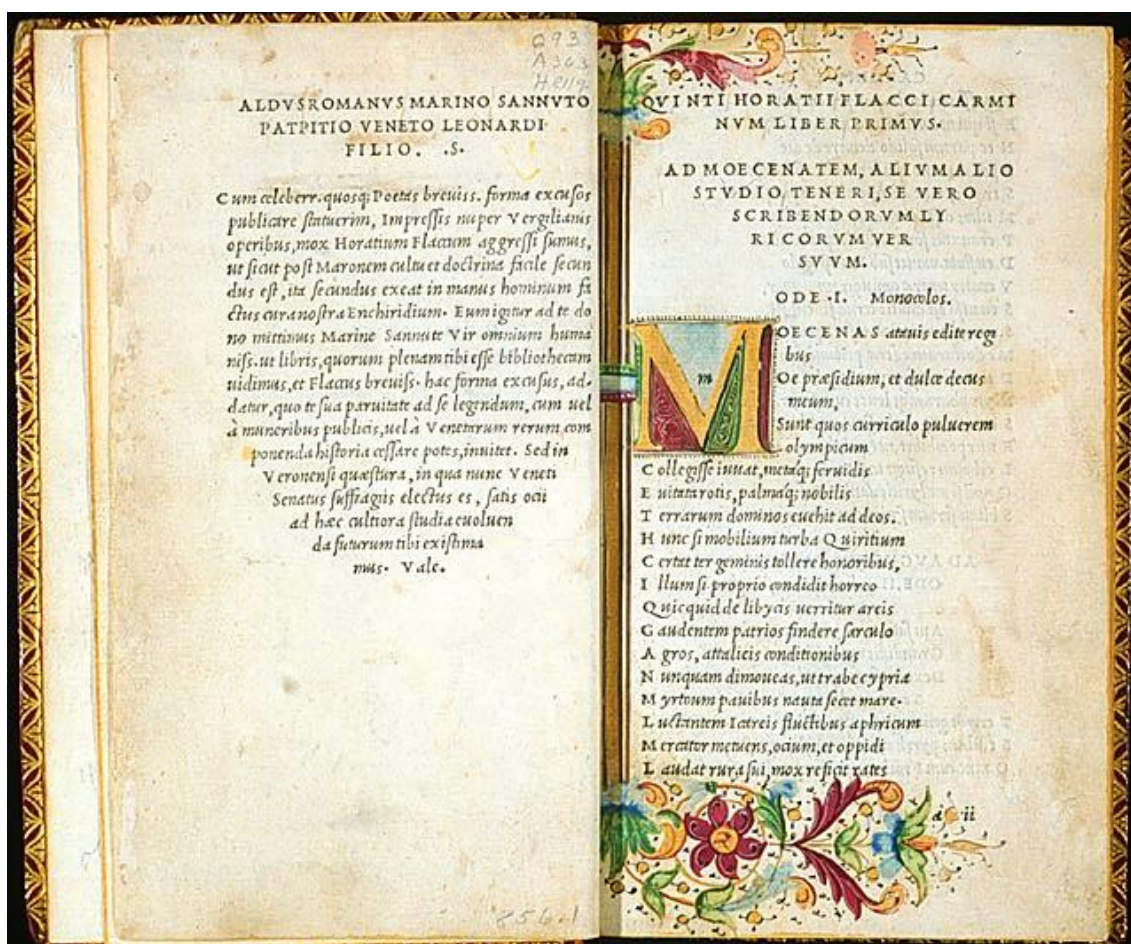 693
A363
ALDVSROMANVS MARINO SANNVTO
PATPITIO VENETO LEONARDI
FILIO. .S.
Cum celeberr. quosq; Poetas breuiss. forma excusos
publicare statuerim, Impressis nuper Vergilianis
operibus, mox Horatium Flaccum aggressi sumus,
ut sicut post Maronem cultu et doctrina facile secun
dus est, ita secundus exeat in manus hominum fa
ctus cura nostra Enchiridium. Eum igitur ad te do
no mittimus Marine Sannute Vir omnium huma
niss. ut libris, quorum plenam tibi esse bibliothecam
uidimus, et Flaccus breuiss. hac forma excusus, ad-
datur, quo te sua paruitate ad se legendum, cum uel
à muneribus publicis, uel à Venetarum rerum com
ponenda historia cessare potes, inuitet. Sed in
Veronensi quæstura, in qua nunc Veneti
Senatus suffragiis electus es, satis oci
ad hæc cultiora studia euoluen
da futurum tibi existima
mus. Vale.
856.1
QVINTI HORATII FLACCI CARMI
NVM LIBER PRIMVS.
AD MOECENATEM, ALIVM ALIO
STVDIO TENERI, SE VERO
SCRIBENDORVM LY
RICORVM VER
SVVM.
ODE .I. Monocolos.
M m OECENAS atauis edite reg
bus
Oe præsidium, et dulce decus
meum,
Sunt quos curriculo puluerem
olympicum
Collegisse iuuat, metaq; feruidis
Euitata rotis, palmaq; nobilis
Terrarum dominos euehit ad deos.
Hunc si mobilium turba Quiritium
Certat ter geminis tollere honoribus,
Illum si proprio condidit horreo
Quicquid de libycis uerritur areis
Gaudentem patrios findere sarculo
Agros, attalicis conditionibus
Nunquam dimoueas, ut trabe cypria
Myrtoum pauibus nauta secet mare.
Luctantem Icareis fluctibus aphricum
Mercator metuens, ocium, et oppidi
Laudat rura sui, mox reficit rates
ii